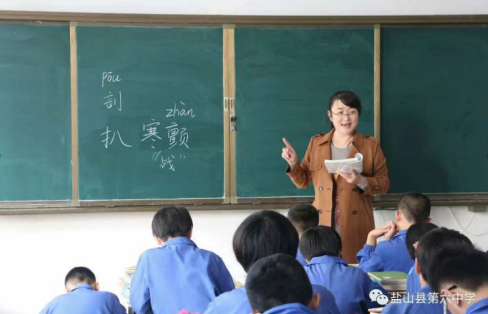 pōu
剖
zhàn
扒 寒颤
“战”
盐山县第六中学